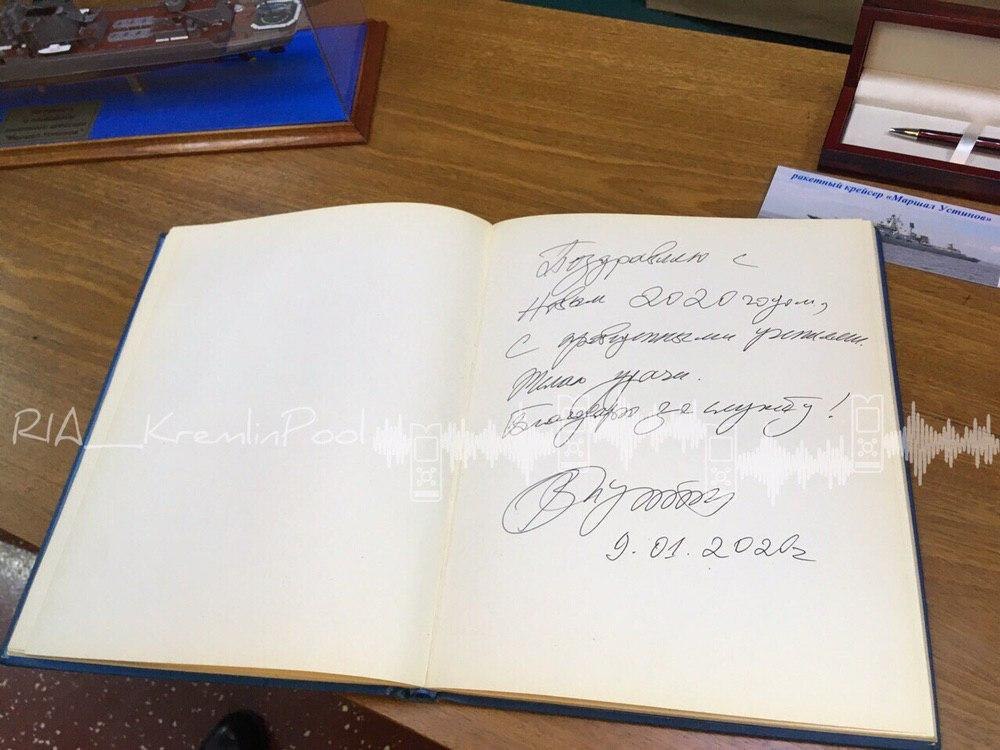 ракетный крейсер «Маршал Устинов»
Поздравляю с
Новым 2020 годом,
с проведенными учениями.
Желаю удачи.
Благодарю за службу!
RIA__KremlinPool
В Путин
9.01.2020г